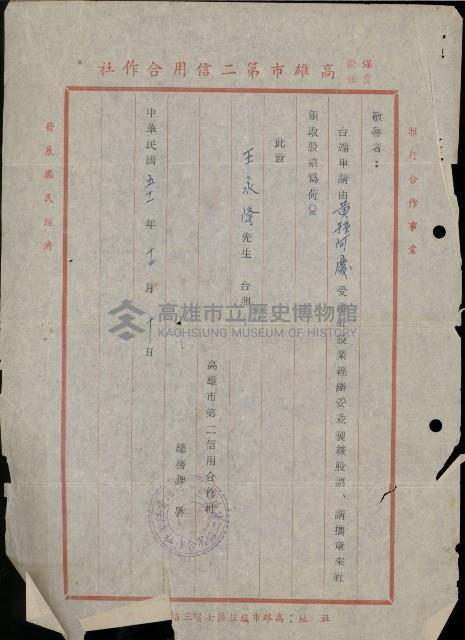 保責證任高雄市第二信用合作社
推行合作事業
敬啓者：
台端申請由黃孫阿慶受讓社股業經辦妥並製竣股票、請攜章來社
領取股票爲荷。
此致
王永隆先生 台照
高雄市第二信用合作社
總務課 啓
中華民國五十一年十月十日
發展國民經濟
社址：高雄市塩埕區七賢三路
高雄市立歷史博物館
KAOHSIUNG MUSEUM OF HISTORY